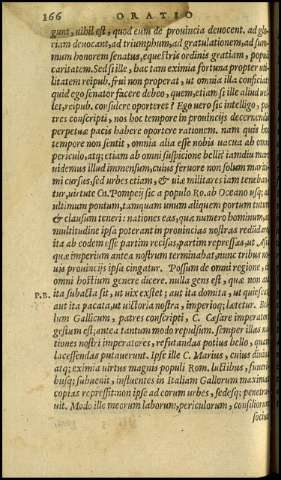 166 ORATIO
gunt, nihil est, quod eum de prouincia deuocent. ad glo-
riam deuocant, ad triumphum, ad gratulationem, ad sum-
mum honorem senatus, equestris ordinis gratiam, populi
caritatem. Sed si ille, hac tam eximia fortuna propter uti-
litatem reipub. frui non properat, ut omnia illa conficiat:
quid ego senator facere debeo, quem, etiam si ille aliud uel-
let, reipub. consulere oporteret? Ego uero sic intelligo, pa-
tres conscripti, nos hoc tempore in prouincijs decernendis
perpetuæ pacis habere oportere rationem. nam quis hoc
tempore non sentit, omnia alia esse nobis uacua ab omni
periculo, atq; etiam ab omni suspicione belli? iamdiu mare
uidemus illud immensum, cuius feruore non solum mariti-
mi cursus, sed urbes etiam, & uiæ militares iam teneban-
tur, uirtute Cn. Pompeij sic a populo Ro. ab Oceano usq; ad
ultimum pontum, tamquam unum aliquem portum tutum
& clausum teneri: nationes eas, quæ numero hominum, ac
multitudine ipsa poterant in prouincias nostras redundare,
ita ab eodem esse partim recisas, partim repressas, ut Asia,
quæ imperium antea nostrum terminabat, nunc tribus no-
uis prouincijs ipsa cingatur. Possum de omni regione, de
omni hostium genere dicere. nulla gens est, quæ non aut
P.B. ita subacta sit, ut uix exstet; aut ita domita, ut quiescat;
aut ita pacata, ut uictoria nostra, imperioq; lætetur. Bel-
lum Gallicum, patres conscripti, C. Cæsare imperatore
gestum est; antea tantummodo repulsum. semper illas na-
tiones nostri imperatores, refutandas potius bello, quam
lacessendas putauerunt. Ipse ille C. Marius, cuius diuina
atq; eximia uirtus magnis populi Rom. luctibus, funeri-
busq; subuenit, influentes in Italiam Gallorum maximas
copias repressit: non ipse ad eorum urbes, sedesq; penetra-
uit. Modo ille meorum laborum, periculorum, consiliorum
socius